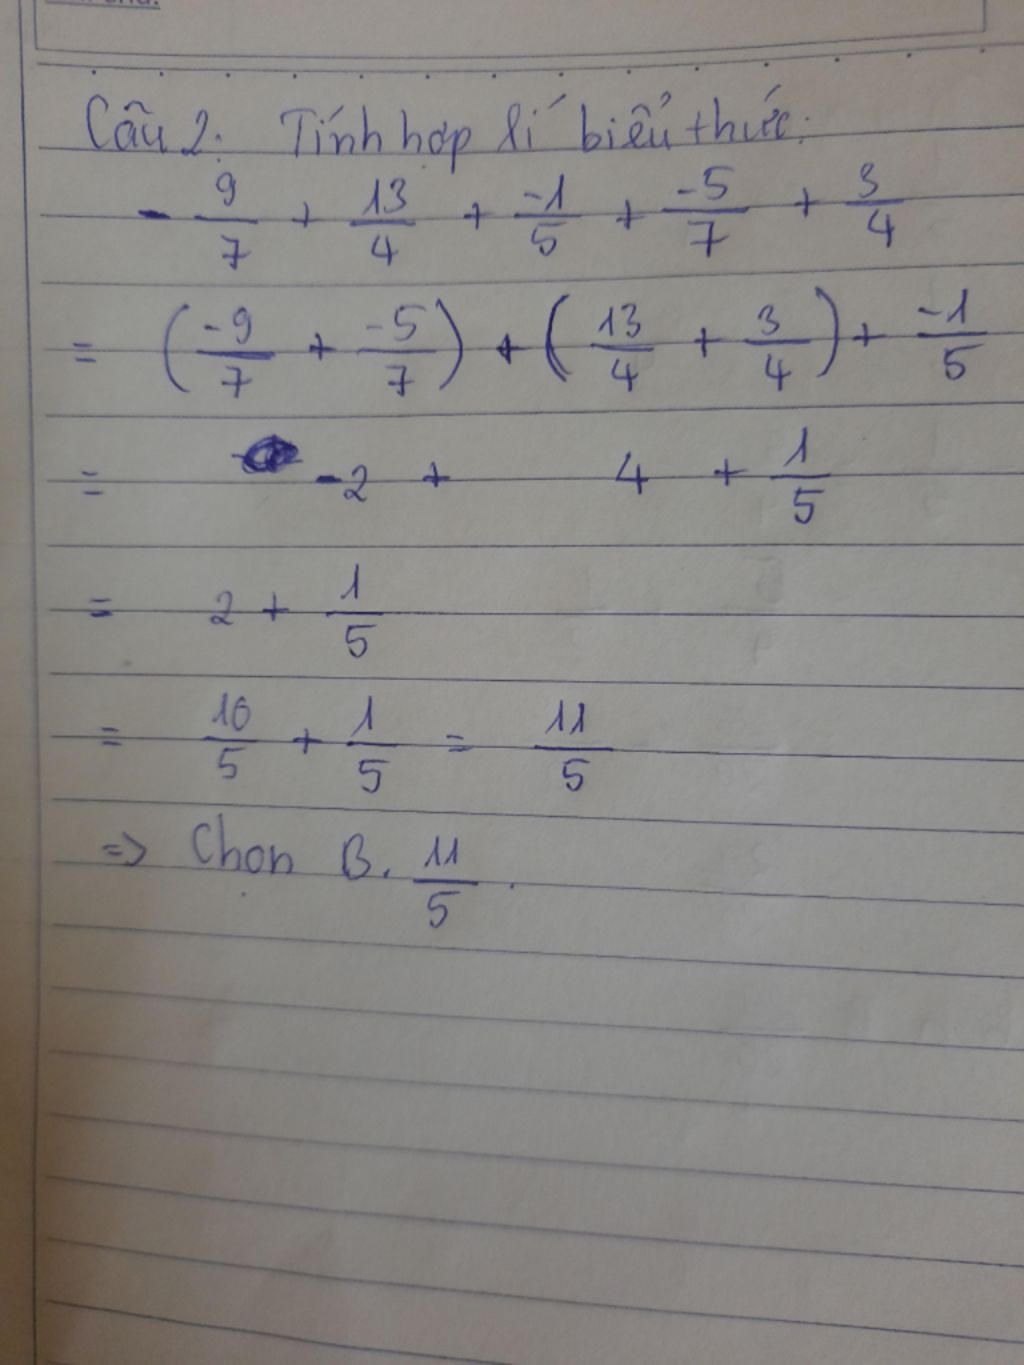 Câu 2. Tính hợp lí biểu thức:
- 9/7 + 13/4 + -1/5 + -5/7 + 3/4
= (-9/7 + -5/7) + (13/4 + 3/4) + -1/5
= -2 + 4 + 1/5
= 2 + 1/5
= 10/5 + 1/5 = 11/5
=> Chọn B. 11/5.